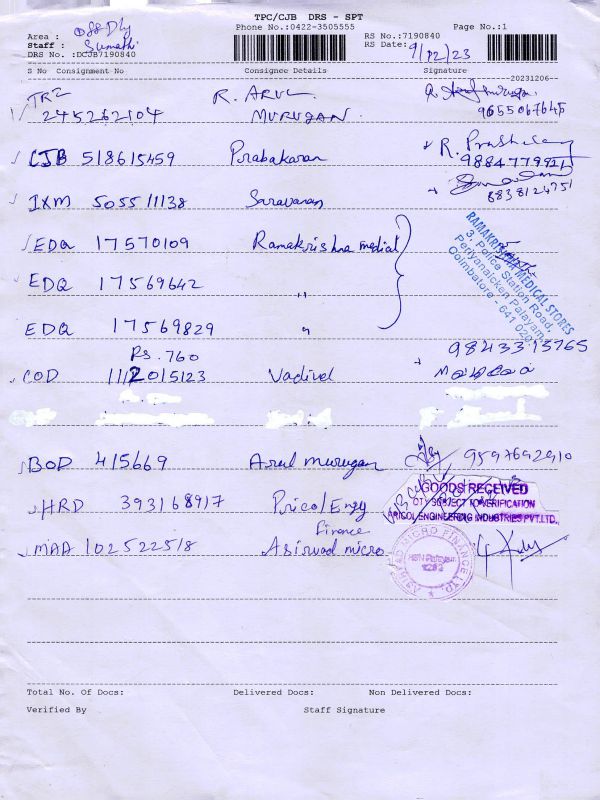 TPC/CJB DRS - SPT
Area : Off Dly
Phone No.:0422-3505555
RS No.:7190840
Page No.:1
Staff : Sumathi
RS Date: 9/12/23
DRS No. :DCJB7190840
S No Consignment No
Consignee Details
Signature
20231206
TR2
245262104
R. ARUL
MURUGAN
9655067645
CJB 518615459
Prabakaran
R.
9884779911
IXM 505511138
Saravanan
8838124751
EDQ 17570109
Ramakrishna medical
EDQ 17569642
"
EDQ 17569829
"
RAMAKRISHNA MEDICAL STORES
3, Police Station Road,
Periyanaicken Palayam,
Coimbatore - 641 020.
Rs. 760
COD 1112015123
Vadivel
9843315765
BOD 415669
Arul murugan
9597692910
HRD 393168917
Pricol Engg
GOODS RECEIVED
SUBJECT TO VERIFICATION
PRICOL ENGINEERING INDUSTRIES PVT.LTD.,
Finance
MAA 102522518
Asirwad micro
MICRO FINANCE LTD
Total No. Of Docs:
Delivered Docs:
Non Delivered Docs:
Verified By
Staff Signature